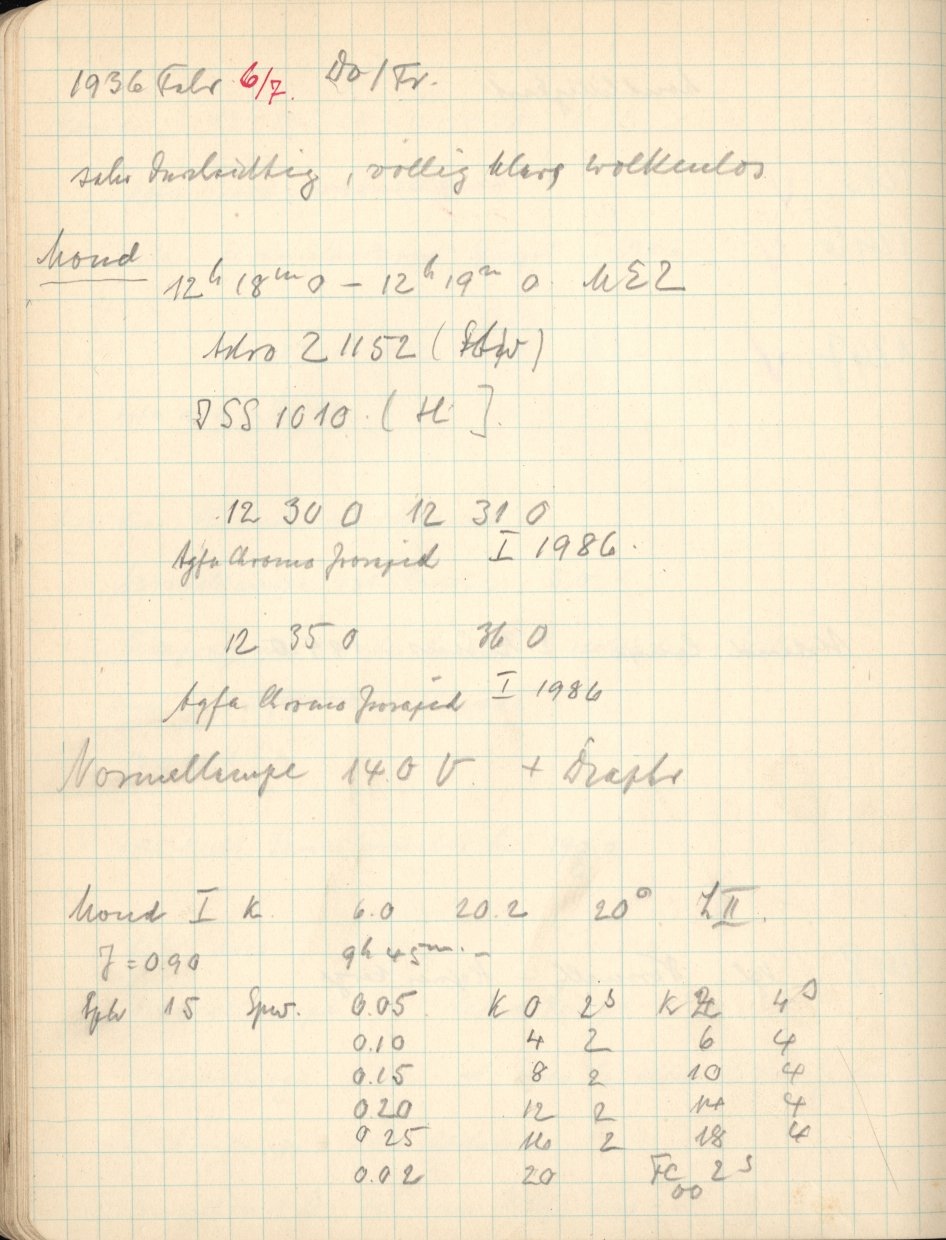 1936 Febr 6/7. Do/Fr.
sehr durchsichtig, völlig klar, wolkenlos
Mond
12h 18m 0 – 12h 19m 0 MEZ
Astro Z 1152 (
ISS 1010 (
12 30 0 12 31 0
Agfa Chromo Isorapid I 1986.
12 35 0 36 0
Agfa Chromo Isorapid I 1986
Normallampe 14.0 V. +
Mond I K 6.0 20.2 20° II.
J = 0.90 9h 45m. –
15 Spw. 0.05 K 0 2s K 4s
0.10 4 2 6 4
0.15 8 2 10 4
0.20 12 2 14 4
0 25 16 2 18 4
0.02 20 Fc 00 2s